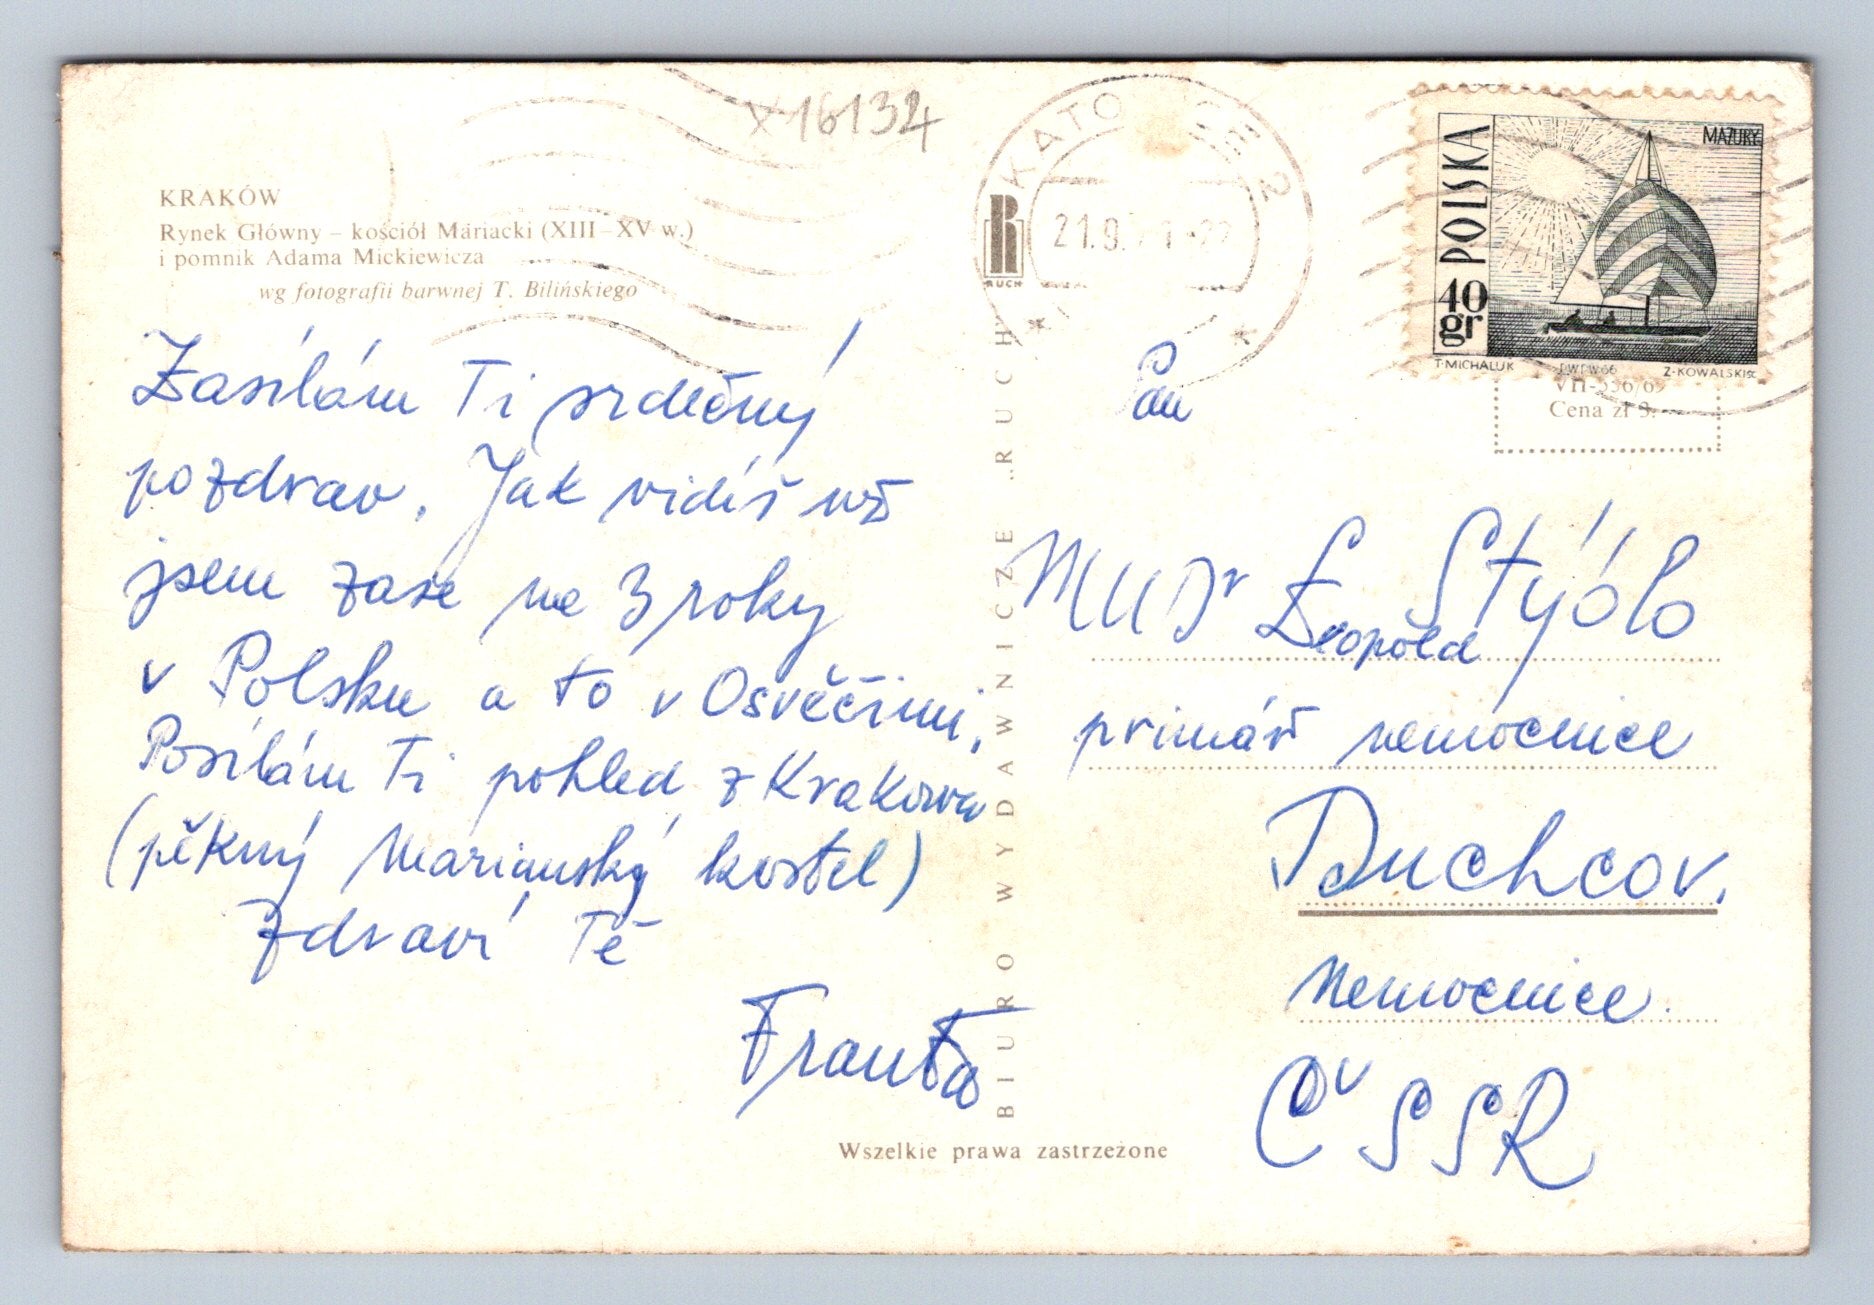 X 16134
KRAKÓW
Rynek Główny – kościół Mariacki (XIII–XV w.)
i pomnik Adama Mickiewicza
wg fotografii barwnej T. Bilińskiego
Zasílám Ti srdečný
pozdrav. Jak vidíš už
jsem zase na 3 roky
v Polsku a to v Osvěčimi,
Posílám Ti pohled z Krakowa
(pěkný Marianský kostel)
Zdraví Tě
Franta
BIURO WYDAWNICZE „RUCH"
RUCH
Wszelkie prawa zastrzeżone
KATO CE 2
21.9.
POLSKA
MAZURY
40 gr
T·MICHALUK
PWPW·66
Z·KOWALSKI
VII-556/69
Cena zł 3.–
Pan
MUDr Leopold Stýblo
primář nemocnice
Duchcov.
Nemocnice
ČSSR